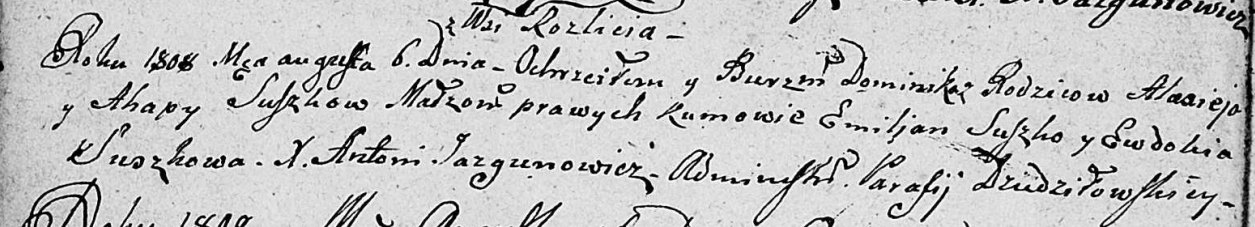 z Wsi Rozlicia -
Roku 1808 Mca augusta 6. Dnia - Ochrzciłem y Burzm Dominika z Rodzicow Alaxieja
y Ahapy Suszkow Małżon prawych Kumowie Emiljan Suszko y Ewdokia
Suszkowa - X. Antoni Jazgunowicz - Administr. Parafij Dziedziłowskiey -
Roku 1808